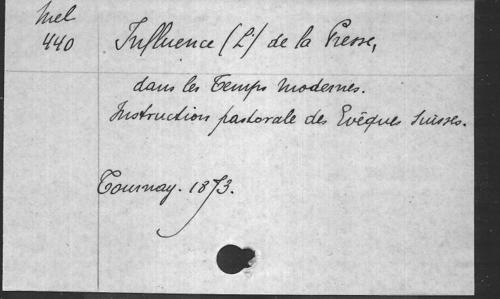 Mel
440
Influence (L') de la Presse,
dans les Temps modernes.
Instruction pastorale des Evêques suisses.
Tournay. 1873.